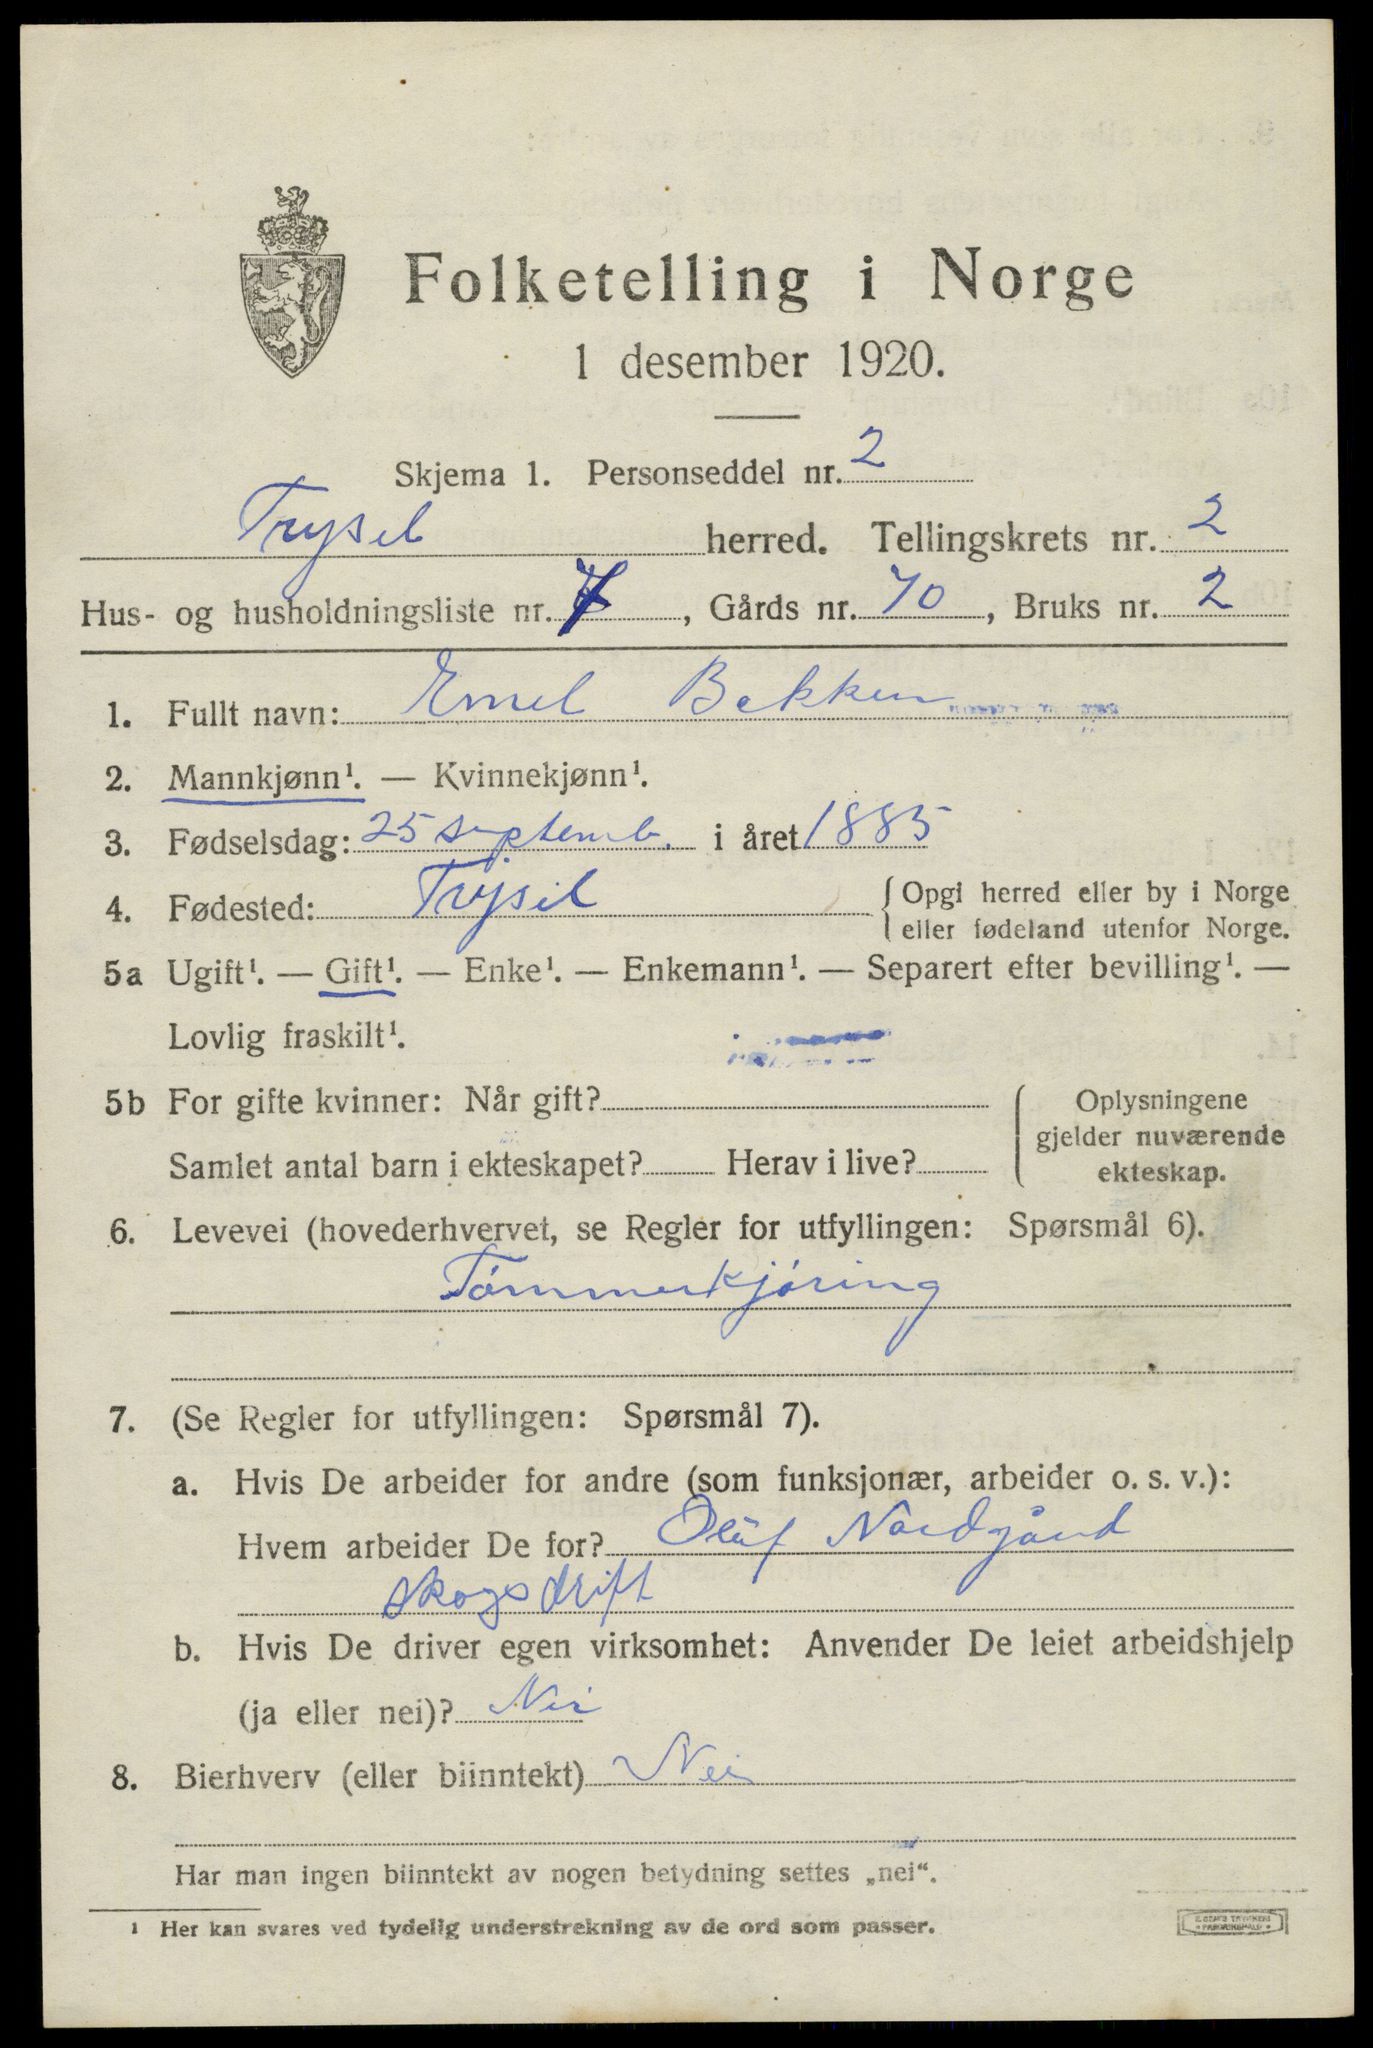 Folketelling i Norge
1 desember 1920.
Skjema 1. Personseddel nr. 2
Trysil herred. Tellingskrets nr. 2
Hus- og husholdningsliste nr. 7, Gårds nr. 70, Bruks nr. 2
1. Fullt navn: Emel Bekken
2. Mannkjønn¹. — Kvinnekjønn¹.
3. Fødselsdag: 25 septemb. i året 1885
4. Fødested: Trysil {Opgi herred eller by i Norge
eller fødeland utenfor Norge.
5a Ugift¹. — Gift¹. — Enke¹. — Enkemann¹. — Separert efter bevilling¹. —
Lovlig fraskilt¹.
5b For gifte kvinner: Når gift? Oplysningene
gjelder nuværende
Samlet antal barn i ekteskapet? Herav i live? ekteskap.
6. Levevei (hovederhvervet, se Regler for utfyllingen: Spørsmål 6).
Tömmerkjöring
7. (Se Regler for utfyllingen: Spørsmål 7).
a. Hvis De arbeider for andre (som funksjonær, arbeider o. s. v.):
Hvem arbeider De for? Oluf Nordgård
skogsdrift
b. Hvis De driver egen virksomhet: Anvender De leiet arbeidshjelp
(ja eller nei)? Nei
8. Bierhverv (eller biinntekt) Nei
Har man ingen biinntekt av nogen betydning settes „nei“.
¹ Her kan svares ved tydelig understrekning av de ord som passer.